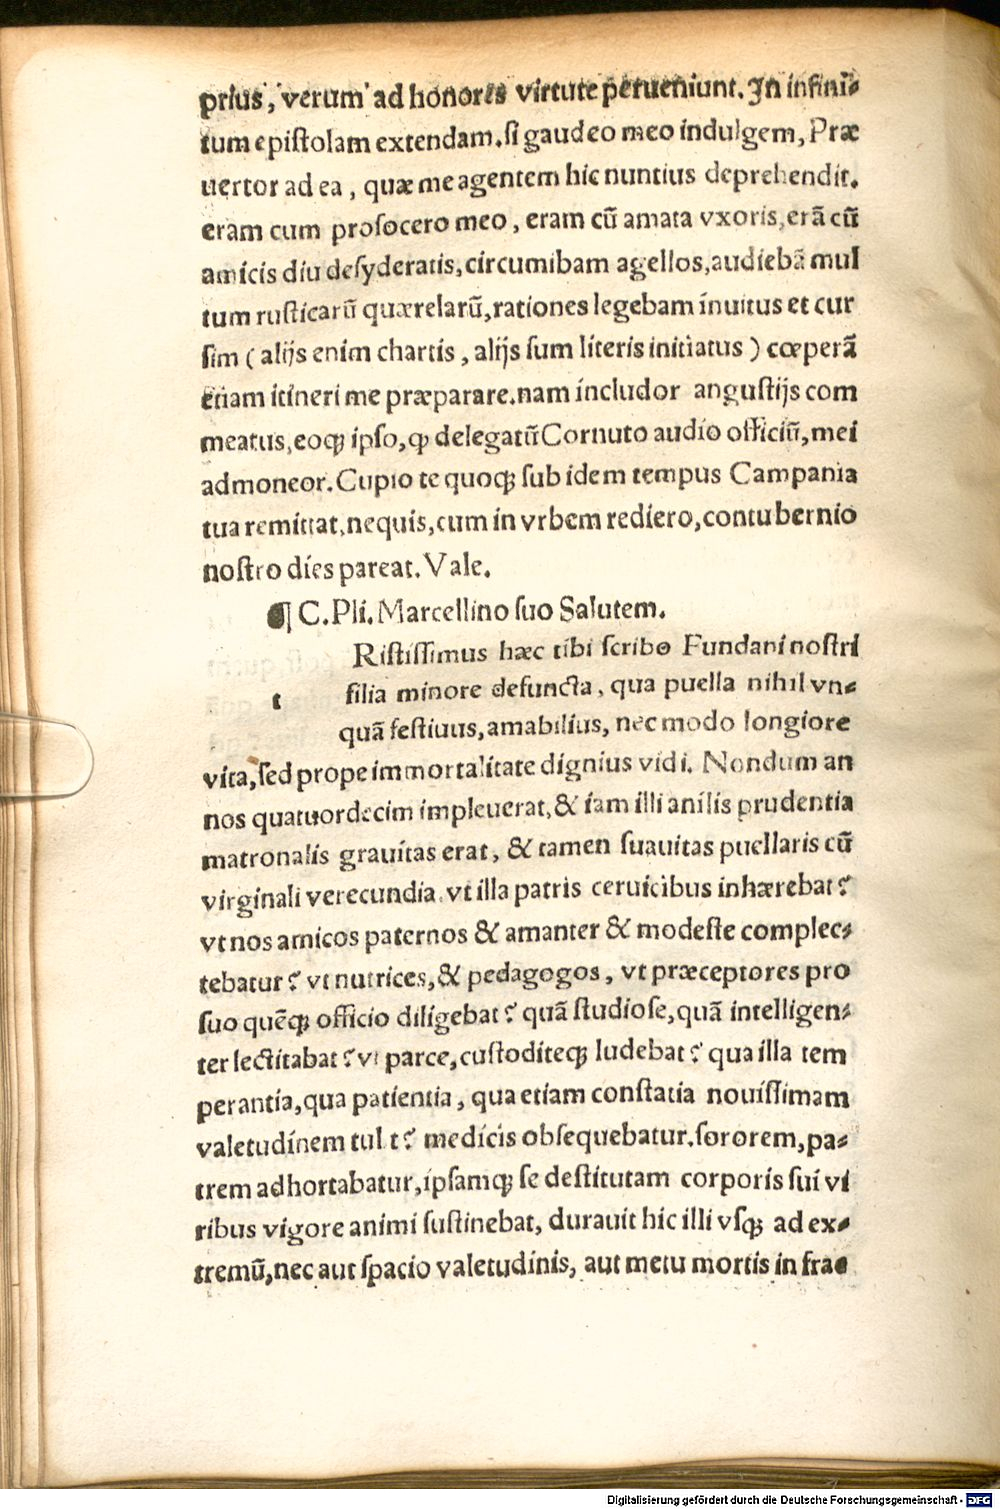 prius, verum ad honores virtute perueniunt. In infini⸗
tum epistolam extendam. si gaudeo meo indulgem, Præ
uertor ad ea, quæ me agentem hic nuntius deprehendit.
eram cum prosocero meo, eram cū amata vxoris, erā cū
amicis diu desyderatis, circumibam agellos, audiebā mul
tum rusticarū quærelarū, rationes legebam inuitus et cur
sim (alijs enim chartis, alijs sum literis initiatus) cœperā
etiam itineri me præparare. nam includor angustijs com
meatus, eoqꝫ ipso, ꝙ delegatū Cornuto audio officiū, mei
admoneor. Cupio te quoqꝫ sub idem tempus Campania
tua remittat, nequis, cum in vrbem rediero, contubernio
nostro dies pareat. Vale.
¶ C. Pli. Marcellino suo Salutem.
t Ristissimus hæc tibi scribo Fundani nostri
filia minore defuncta, qua puella nihil vn⸗
quā festiuus, amabilius, nec modo longiore
vita, sed prope immortalitate dignius vidi. Nondum an
nos quatuordecim impleuerat, & iam illi anilis prudentia
matronalis grauitas erat, & tamen suauitas puellaris cū
virginali verecundia. vt illa patris ceruicibus inhærebat?
vt nos amicos paternos & amanter & modeste complec⸗
tebatur? vt nutrices, & pedagogos, vt præceptores pro
suo quēqꝫ officio diligebat? quā studiose, quā intelligen⸗
ter lectitabat? vt parce, custoditeqꝫ ludebat? qua illa tem
perantia, qua patientia, qua etiam constatia nouissimam
valetudinem tul t? medicis obsequebatur. sororem, pa⸗
trem adhortabatur, ipsamqꝫ se destitutam corporis sui vi
ribus vigore animi sustinebat, durauit hic illi vsqꝫ ad ex⸗
tremū, nec aut spacio valetudinis, aut metu mortis in frac
Digitalisierung gefördert durch die Deutsche Forschungsgemeinschaft - DFG